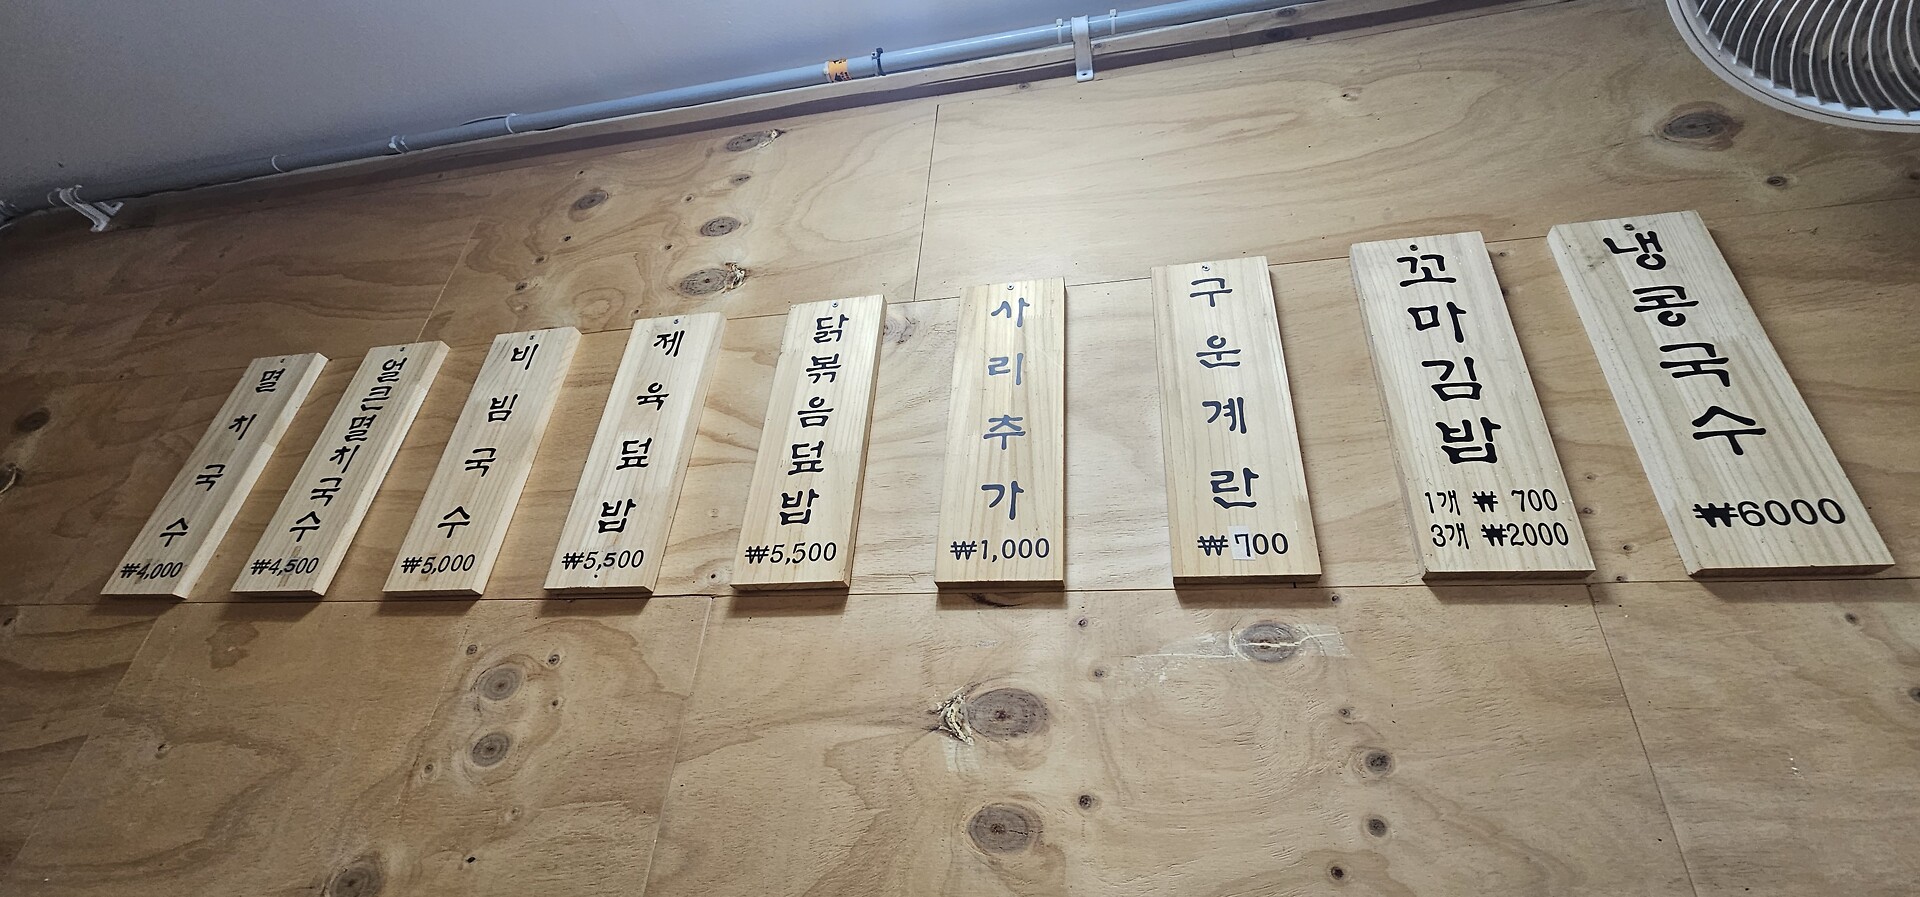 멸치국수
₩4,000
얼큰멸치국수
₩4,500
비빔국수
₩5,000
제육덮밥
₩5,500
닭볶음덮밥
₩5,500
사리추가
₩1,000
구운계란
₩700
꼬마김밥
1개 ₩ 700
3개 ₩2000
냉콩국수
₩6000